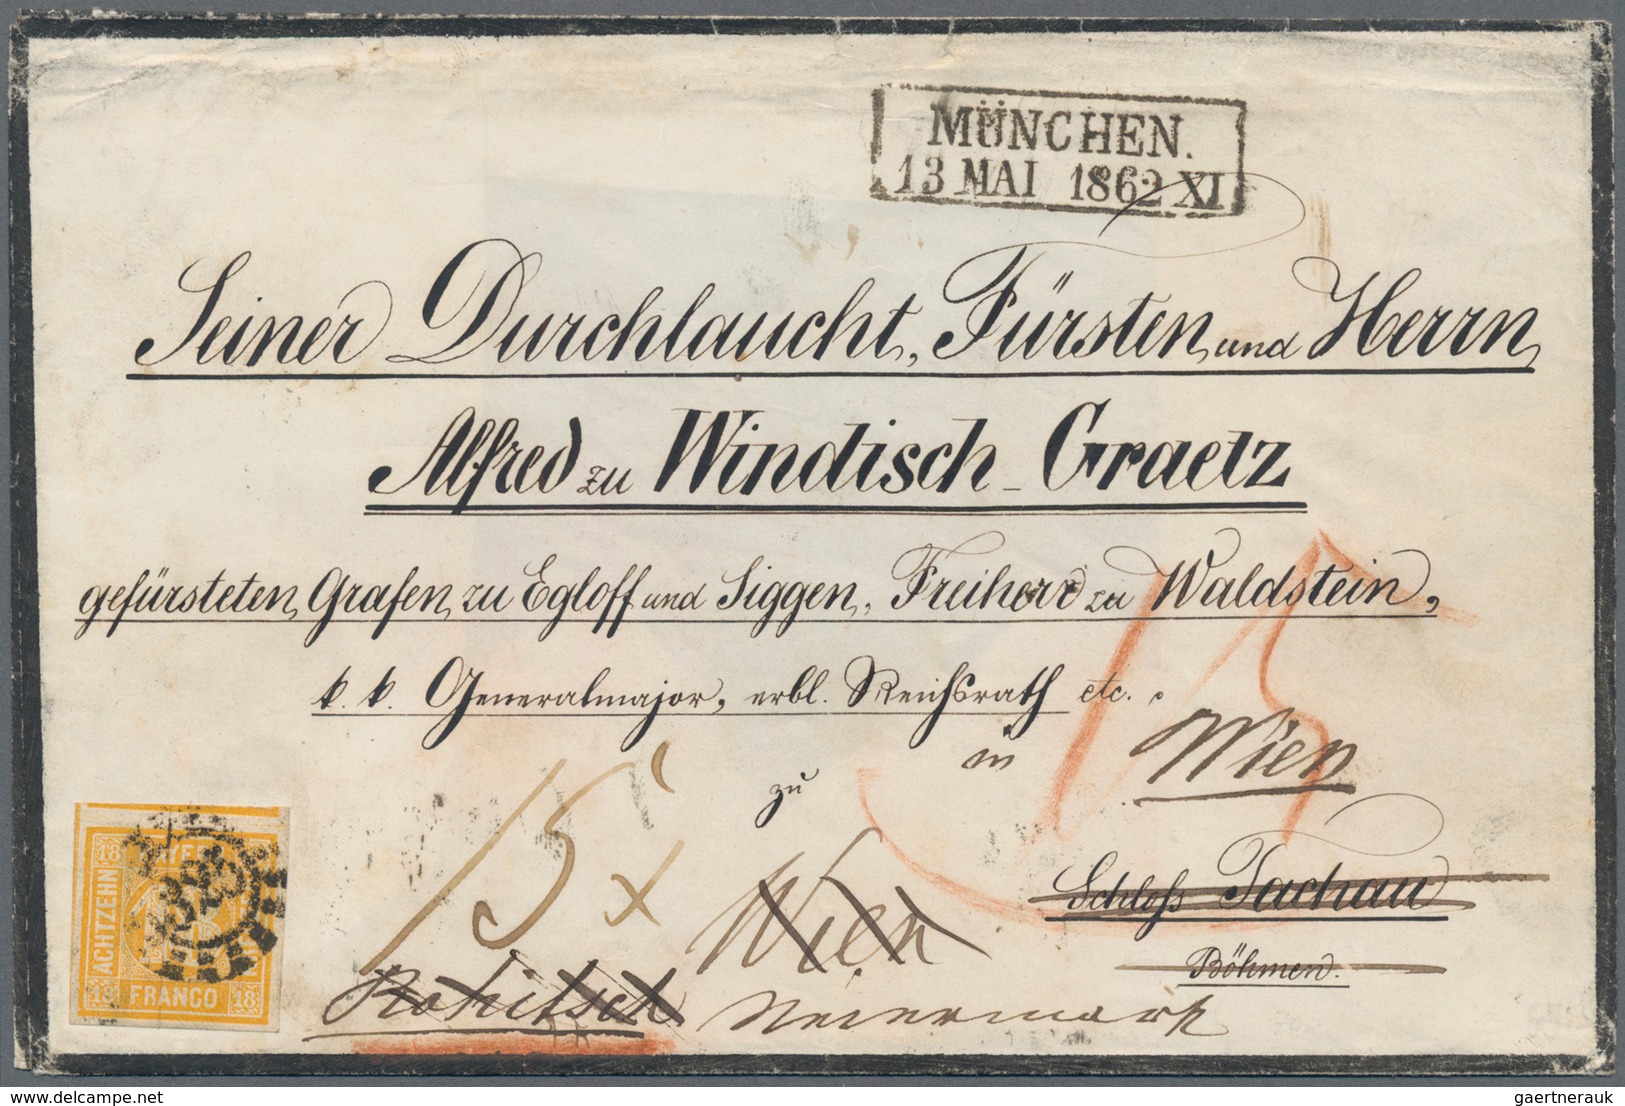 MÜNCHEN.
13 MAI 1862 XI
Seiner Durchlaucht, Fürsten und Herrn
Alfred zu Windisch-Graetz
gefürsteten Grafen zu Egloff und Siggen, Freiherr zu Waldstein,
k. k. Generalmajor, erbl. Reichsrath etc.
in Wien
zu
15
15 x
Wien
Schloß Tachau
Böhmen.
Rohitsch Steiermark
18 BAYER
ACHTZEHN
325
18 FRANCO 18
delcampe.net
gaertnerauk